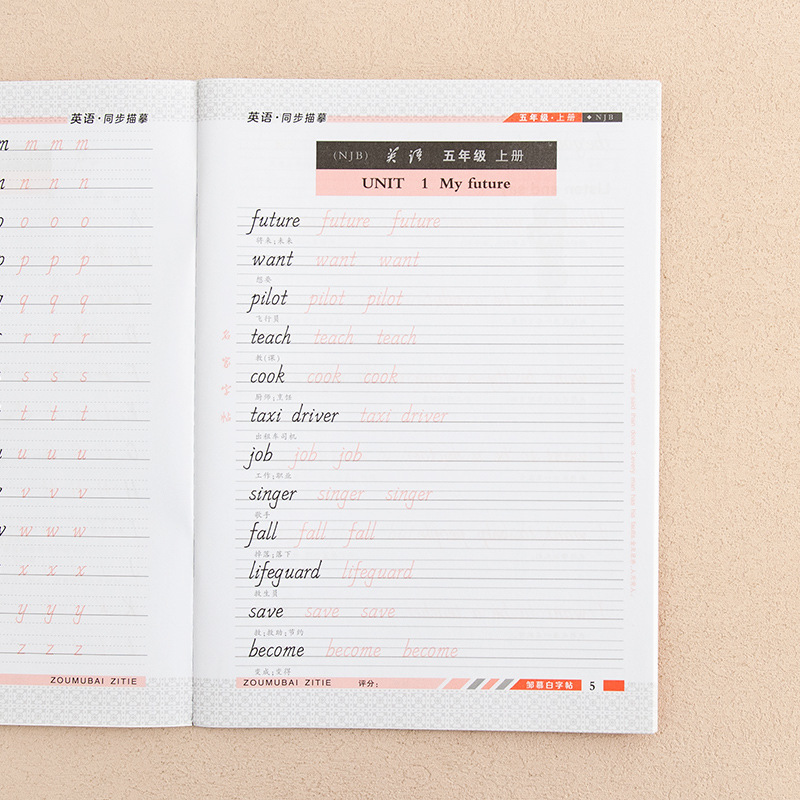 英语·同步描摹
m m m m
n n n n
o o o o
p p p p
q q q
r r r
s s s
t t t
u u u u
v v v
w w w w
x x x
y y y
z z z
ZOUMUBAI ZITIE
英语·同步描摹
五年级·上册 ◆NJB
(NJB) 英语 五年级 上册
UNIT 1 My future
future future future
将来;未来
want want want
想要
pilot pilot pilot
飞行员
teach teach teach
教(课)
cook cook cook
厨师;烹饪
taxi driver taxi driver
出租车司机
job job job
工作;职业
singer singer singer
歌手
fall fall fall
掉落;落下
lifeguard lifeguard
救生员
save save save
救;救助;节约
become become become
变成;变得
名家字帖
ZOUMUBAI ZITIE 评分:
邹慕白字帖 5